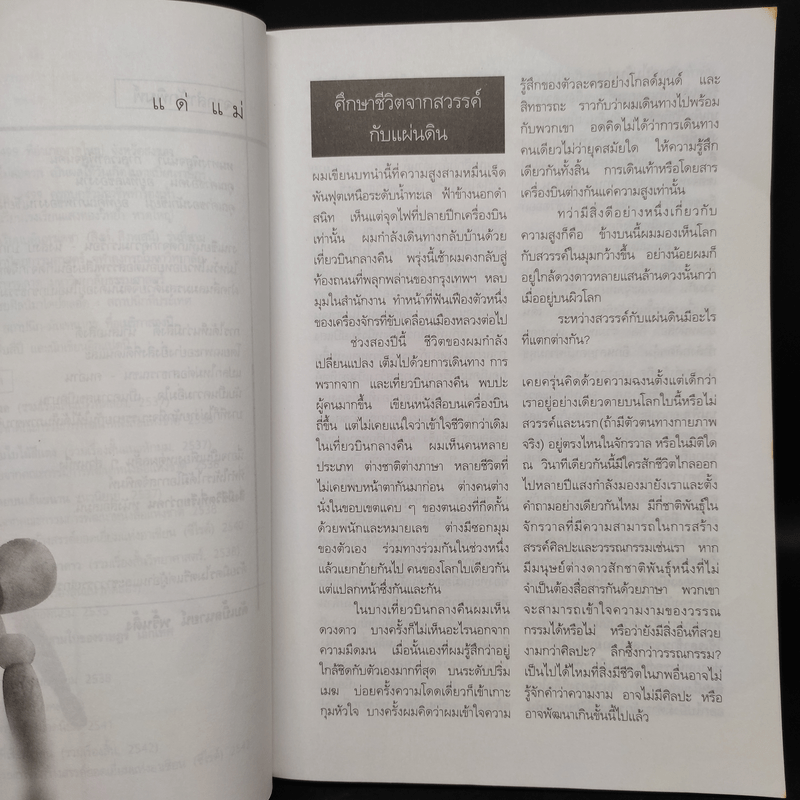 แด่ แม่
ศึกษาชีวิตจากสวรรค์
กับแผ่นดิน
ผมเขียนบทนำนี้ที่ความสูงสามหมื่นเจ็ด
พันฟุตเหนือระดับน้ำทะเล ฟ้าข้างนอกดำ
สนิท เห็นแต่จุดไฟที่ปลายปีกเครื่องบิน
เท่านั้น ผมกำลังเดินทางกลับบ้านด้วย
เที่ยวบินกลางคืน พรุ่งนี้เช้าผมคงกลับสู่
ท้องถนนที่พลุกพล่านของกรุงเทพฯ หลบ
มุมในสำนักงาน ทำหน้าที่ฟันเฟืองตัวหนึ่ง
ของเครื่องจักรที่ขับเคลื่อนเมืองหลวงต่อไป
ช่วงสองปีนี้ ชีวิตของผมกำลัง
เปลี่ยนแปลง เต็มไปด้วยการเดินทาง การ
พรากจาก และเที่ยวบินกลางคืน พบปะ
ผู้คนมากขึ้น เขียนหนังสือบนเครื่องบิน
ถี่ขึ้น แต่ไม่เคยแน่ใจว่าเข้าใจชีวิตกว่าเดิม
ในเที่ยวบินกลางคืน ผมเห็นคนหลาย
ประเภท ต่างชาติต่างภาษา หลายชีวิตที่
ไม่เคยพบหน้าตากันมาก่อน ต่างคนต่าง
นั่งในขอบเขตแคบ ๆ ของตนเองที่กีดกั้น
ด้วยพนักและหมายเลข ต่างมีซอกมุม
ของตัวเอง ร่วมทางร่วมกันในช่วงหนึ่ง
แล้วแยกย้ายกันไป คนของโลกใบเดียวกัน
แต่แปลกหน้าซึ่งกันและกัน
ในบางเที่ยวบินกลางคืนผมเห็น
ดวงดาว บางครั้งก็ไม่เห็นอะไรนอกจาก
ความมืดมน เมื่อนั้นเองที่ผมรู้สึกว่าอยู่
ใกล้ชิดกับตัวเองมากที่สุด บนระดับปริ่ม
เมฆ บ่อยครั้งความโดดเดี่ยวก็เข้าเกาะ
กุมหัวใจ บางครั้งผมคิดว่าผมเข้าใจความ
รู้สึกของตัวละครอย่างโกลด์มุนด์ และ
สิทธารถะ ราวกับว่าผมเดินทางไปพร้อม
กับพวกเขา อดคิดไม่ได้ว่าการเดินทาง
คนเดียวไม่ว่ายุคสมัยใด ให้ความรู้สึก
เดียวกันทั้งสิ้น การเดินเท้าหรือโดยสาร
เครื่องบินต่างกันแค่ความสูงเท่านั้น
ทว่ามีสิ่งดีอย่างหนึ่งเกี่ยวกับ
ความสูงก็คือ ข้างบนนี้ผมมองเห็นโลก
กับสวรรค์ในมุมกว้างขึ้น อย่างน้อยผมก็
อยู่ใกล้ดวงดาวหลายแสนล้านดวงนั้นกว่า
เมื่ออยู่บนผิวโลก
ระหว่างสวรรค์กับแผ่นดินมีอะไร
ที่แตกต่างกัน?
เคยครุ่นคิดด้วยความฉงนตั้งแต่เด็กว่า
เราอยู่อย่างเดียวดายบนโลกใบนี้หรือไม่
สวรรค์และนรก(ถ้ามีตัวตนทางกายภาพ
จริง) อยู่ตรงไหนในจักรวาล หรือในมิติใด
ณ วินาทีเดียวกันนี้มีใครสักชีวิตไกลออก
ไปหลายปีแสงกำลังมองมายังเราและตั้ง
คำถามอย่างเดียวกันไหม มีกี่ชาติพันธุ์ใน
จักรวาลที่มีความสามารถในการสร้าง
สรรค์ศิลปะและวรรณกรรมเช่นเรา หาก
มีมนุษย์ต่างดาวสักชาติพันธุ์หนึ่งที่ไม่
จำเป็นต้องสื่อสารกันด้วยภาษา พวกเขา
จะสามารถเข้าใจความงามของวรรณ
กรรมได้หรือไม่ หรือว่ายังมีสิ่งอื่นที่สวย
งามกว่าศิลปะ? ลึกซึ้งกว่าวรรณกรรม?
เป็นไปได้ไหมที่สิ่งมีชีวิตในภพอื่นอาจไม่
รู้จักคำว่าความงาม อาจไม่มีศิลปะ หรือ
อาจพัฒนาเกินชั้นนี้ไปแล้ว